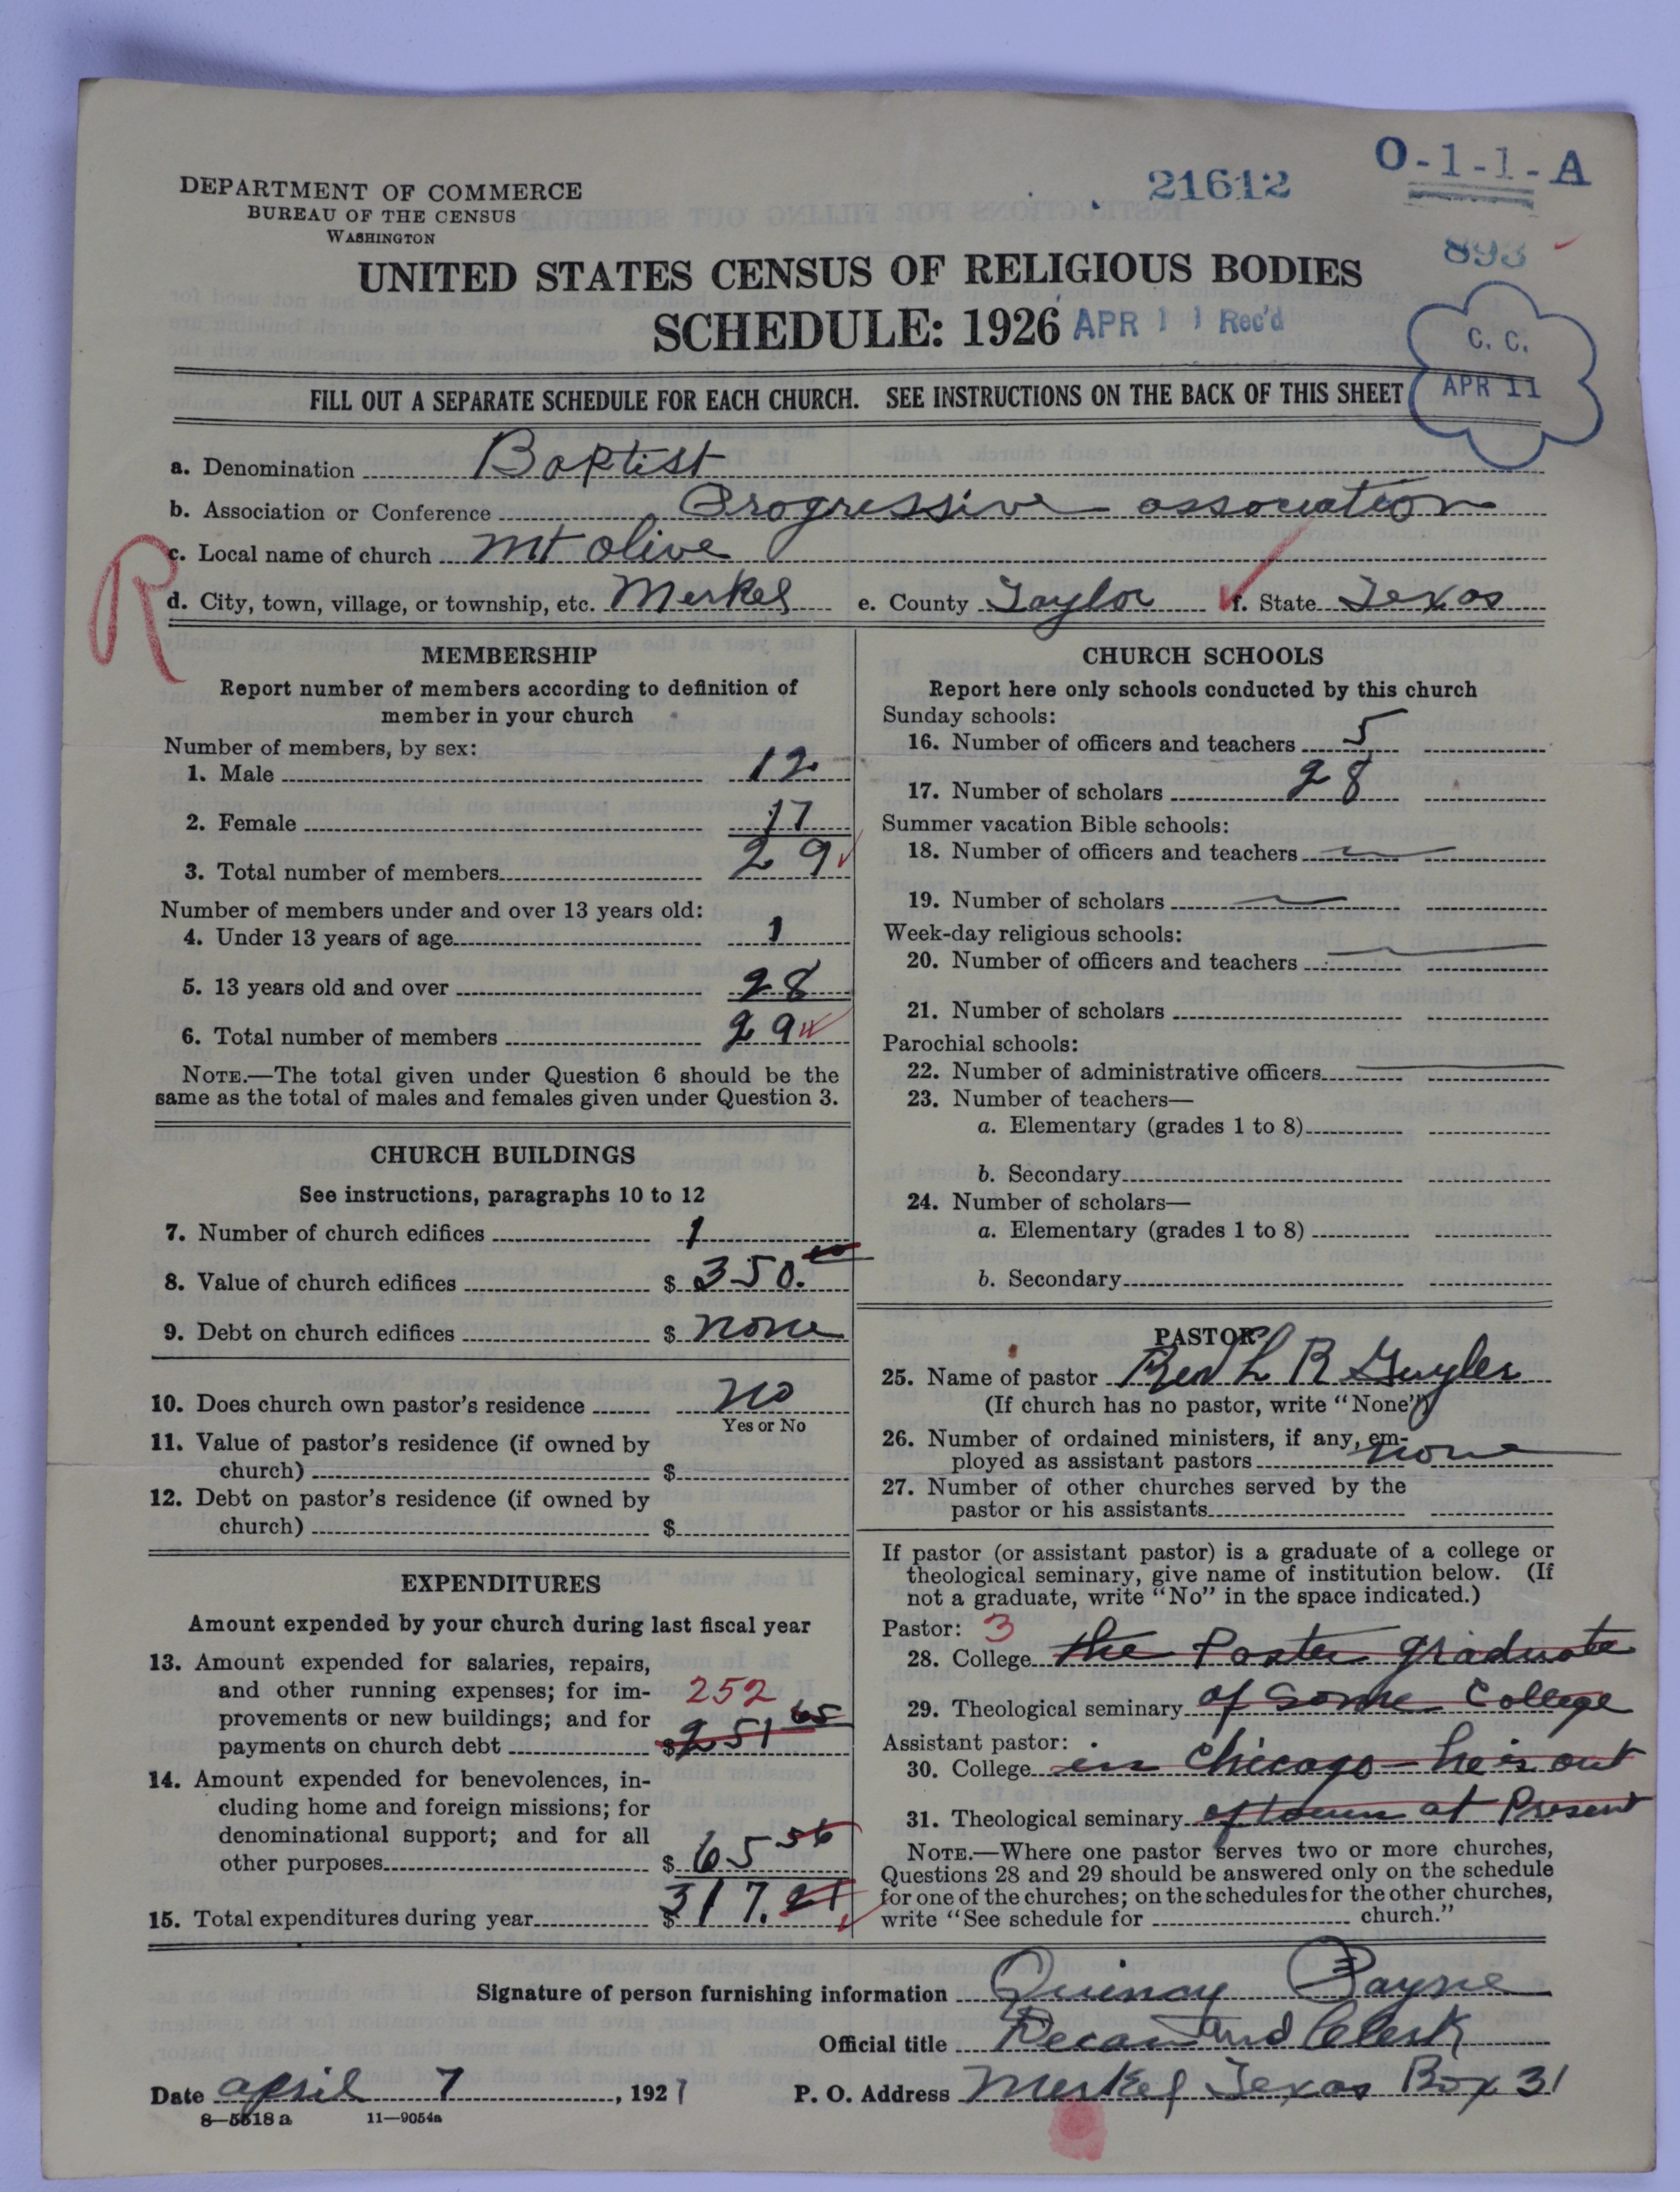 O-1-1-A
21612
DEPARTMENT OF COMMERCE
BUREAU OF THE CENSUS
WASHINGTON
893
UNITED STATES CENSUS OF RELIGIOUS BODIES
SCHEDULE: 1926 APR 11 Rec'd
C. C.
APR 11
FILL OUT A SEPARATE SCHEDULE FOR EACH CHURCH. SEE INSTRUCTIONS ON THE BACK OF THIS SHEET
a. Denomination Baptist
b. Association or Conference Progressive association
R
c. Local name of church Mt Olive
d. City, town, village, or township, etc. Merkel e. County Taylor f. State Texas
MEMBERSHIP
Report number of members according to definition of
member in your church
Number of members, by sex:
1. Male 12
2. Female 17
3. Total number of members 29
Number of members under and over 13 years old:
4. Under 13 years of age 1
5. 13 years old and over 28
6. Total number of members 29
NOTE.—The total given under Question 6 should be the
same as the total of males and females given under Question 3.
CHURCH BUILDINGS
See instructions, paragraphs 10 to 12
7. Number of church edifices 1
8. Value of church edifices $ 350.
9. Debt on church edifices $ none
10. Does church own pastor's residence no
Yes or No
11. Value of pastor's residence (if owned by
church) $
12. Debt on pastor's residence (if owned by
church) $
EXPENDITURES
Amount expended by your church during last fiscal year
13. Amount expended for salaries, repairs,
and other running expenses; for im-
252
provements or new buildings; and for
payments on church debt $ 251 65
14. Amount expended for benevolences, in-
cluding home and foreign missions; for
denominational support; and for all
other purposes $ 65 56
15. Total expenditures during year $ 317. 21
CHURCH SCHOOLS
Report here only schools conducted by this church
Sunday schools:
16. Number of officers and teachers 5
17. Number of scholars 28
Summer vacation Bible schools:
18. Number of officers and teachers
19. Number of scholars
Week-day religious schools:
20. Number of officers and teachers
21. Number of scholars
Parochial schools:
22. Number of administrative officers
23. Number of teachers—
a. Elementary (grades 1 to 8)
b. Secondary
24. Number of scholars—
a. Elementary (grades 1 to 8)
b. Secondary
PASTOR
25. Name of pastor Rev L R Guyler
(If church has no pastor, write "None")
26. Number of ordained ministers, if any, em-
ployed as assistant pastors none
27. Number of other churches served by the
pastor or his assistants
If pastor (or assistant pastor) is a graduate of a college or
theological seminary, give name of institution below. (If
not a graduate, write "No" in the space indicated.)
Pastor: 3
28. College the Paster graduate
29. Theological seminary of Some College
Assistant pastor:
30. College in Chicago - he is out
31. Theological seminary of town at Present
NOTE.—Where one pastor serves two or more churches,
Questions 28 and 29 should be answered only on the schedule
for one of the churches; on the schedules for the other churches,
write "See schedule for church."
Signature of person furnishing information Quincy Payne
Official title Decan and Clerk
Date april 7, 1927 P. O. Address Merkel Texas Box 31
8—5518a 11—9054a